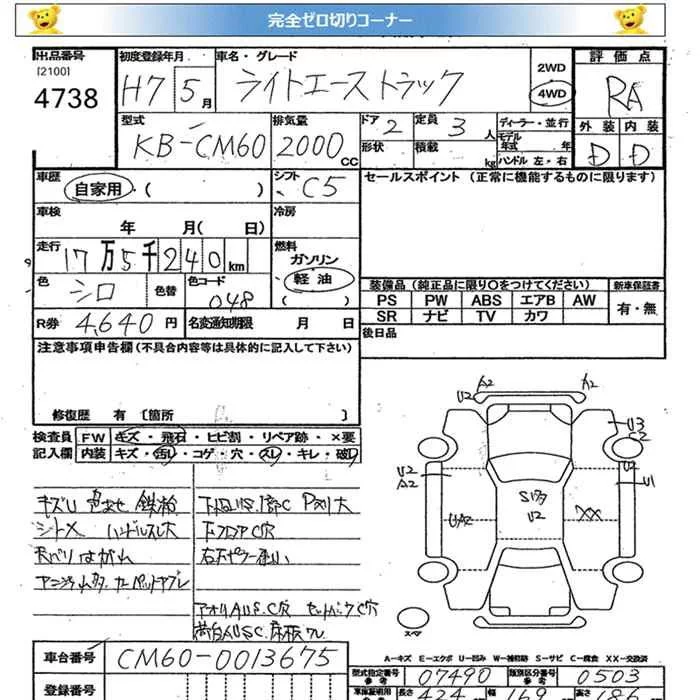 完全ゼロ切りコーナー
出品番号 初度登録年月 車名・グレード 2WD 評価点
[2100]
4738 H7 5月 ライトエーストラック 4WD RA
型式 排気量 ドア 定員 ディーラー・並行 外装 内装
KB-CM60 2000cc 2 3人 モデル年式 年 D D
形状 積載 kg ハンドル 左・右
車歴 シフト セールスポイント (正常に機能するものに限ります)
自家用・( ) C5
車検 年 月( 日) 冷房
走行 17万5千240km 燃料 ガソリン
軽油
色 シロ 色替 色コード 048
装備品 (純正品に限り○をつけてください) 新車保証書
PS PW ABS エアB AW 有・無
SR ナビ TV カワ
R券 4,640円 名変通知期限 月 日 後日品
注意事項申告欄(不具合内容等は具体的に記入して下さい)
修復歴 有 〔箇所 〕
検査員 FW キズ・飛石・ヒビ割・リペア跡・×要
記入欄 内装 キズ・汚レ・コゲ・穴・スレ・キレ・破レ
A2 A2
U2
U3
C2
U2 U2
A2 U1
S173
U2
UA2 XX
キズU 色あせ 鉄粉
シトメ ハンドルスレ大
下フロアC穴
スペア
A-キズ E-エクボ U-凹み W-補修跡 S-サビ C-腐食 XX-交換済
車台番号 CM60-0013675
型式指定番号 07490 類別区分番号 0503
参考 参考
登録番号 車庫証明用 長さ 424 幅 169 高さ 186